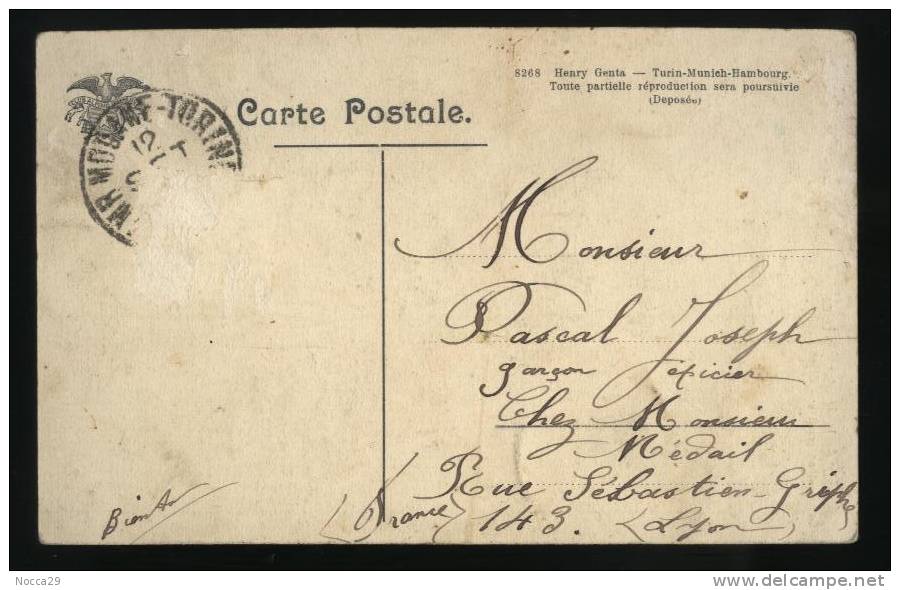 8268 Henry Genta — Turin-Munich-Hambourg.
Toute partielle réproduction sera poursuivie
(Deposée)
Carte Postale.
Monsieur
Pascal Joseph
garçon épicier
Chez Monsieur
Médail
Rue Sébastien-Griphe
143. (Lyon)
(France)
Bientôt
Nocca29
www.delcampe.net